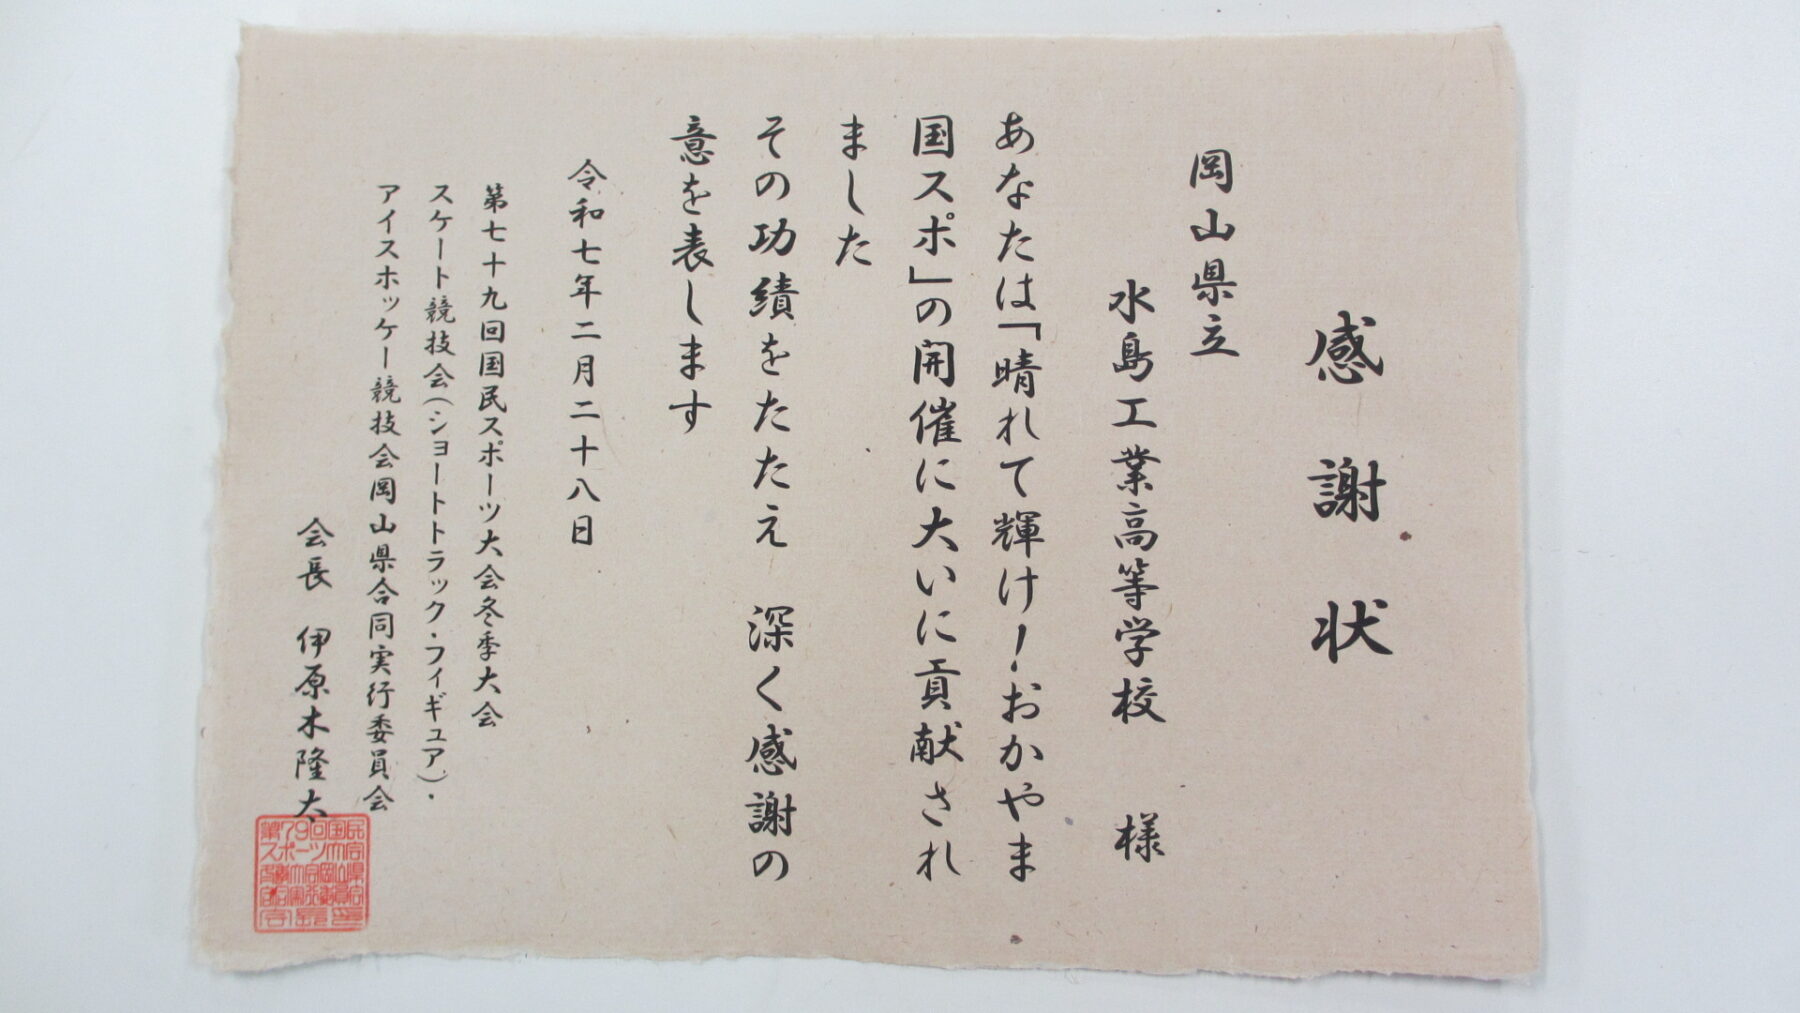 感謝状
岡山県立
水島工業高等学校 様
あなたは「晴れて輝け！おかやま
国スポ」の開催に大いに貢献され
ました
その功績をたたえ 深く感謝の
意を表します
令和七年二月二十八日
第七十九回国民スポーツ大会冬季大会
スケート競技会（ショートトラック・フィギュア）・
アイスホッケー競技会岡山県合同実行委員会
会長 伊原木隆太
第79回国民
スポーツ